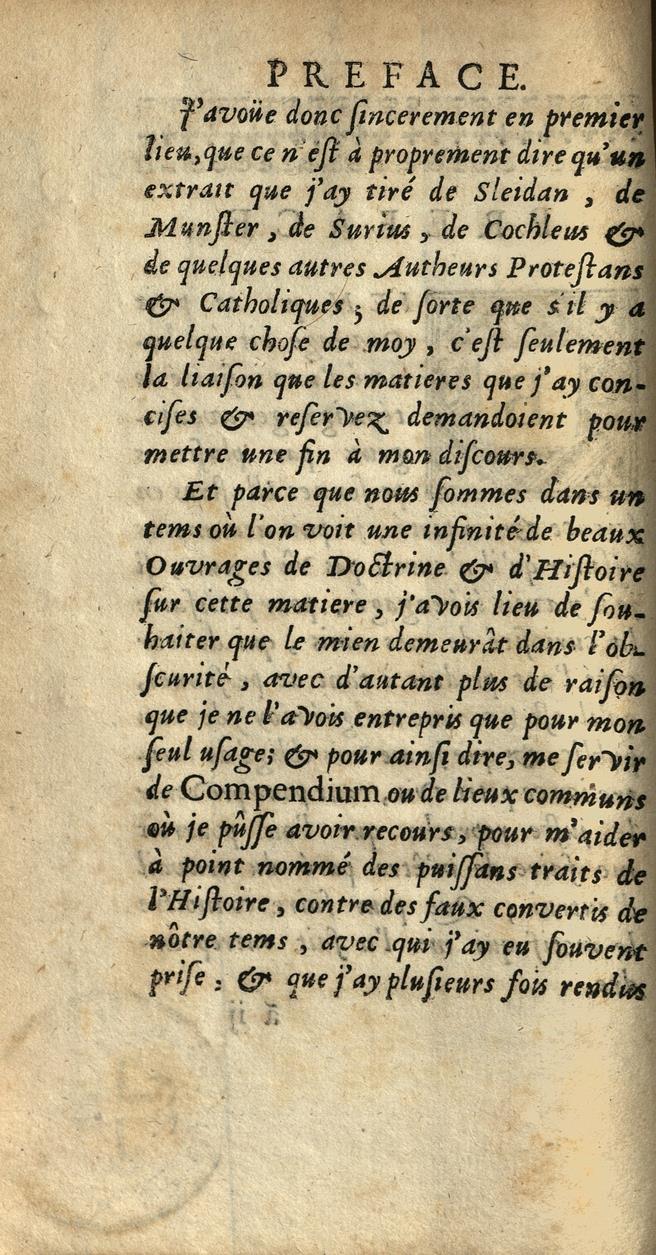 PREFACE.
J'avoüe donc ſincerement en premier
lieu, que ce n'eſt à proprement dire qu'un
extrait que j'ay tiré de Sleidan, de
Munſter, de Surius, de Cochleus &
de quelques autres Autheurs Proteſtans
& Catholiques; de ſorte que s'il y a
quelque choſe de moy, c'eſt ſeulement
la liaiſon que les matieres que j'ay con-
ciſes & reſervez demandoient pour
mettre une fin à mon diſcours.
Et parce que nous ſommes dans un
tems où l'on voit une infinité de beaux
Ouvrages de Doctrine & d'Hiſtoire
ſur cette matiere, j'avois lieu de ſou-
haiter que le mien demeurât dans l'ob-
ſcurité, avec d'autant plus de raiſon
que je ne l'avois entrepris que pour mon
ſeul uſage; & pour ainſi dire, me ſervir
de Compendium ou de lieux communs
où je pûſſe avoir recours, pour m'aider
à point nommé des puiſſans traits de
l'Hiſtoire, contre des faux convertis de
nôtre tems, avec qui j'ay eu ſouvent
priſe; & que j'ay pluſieurs fois rendus